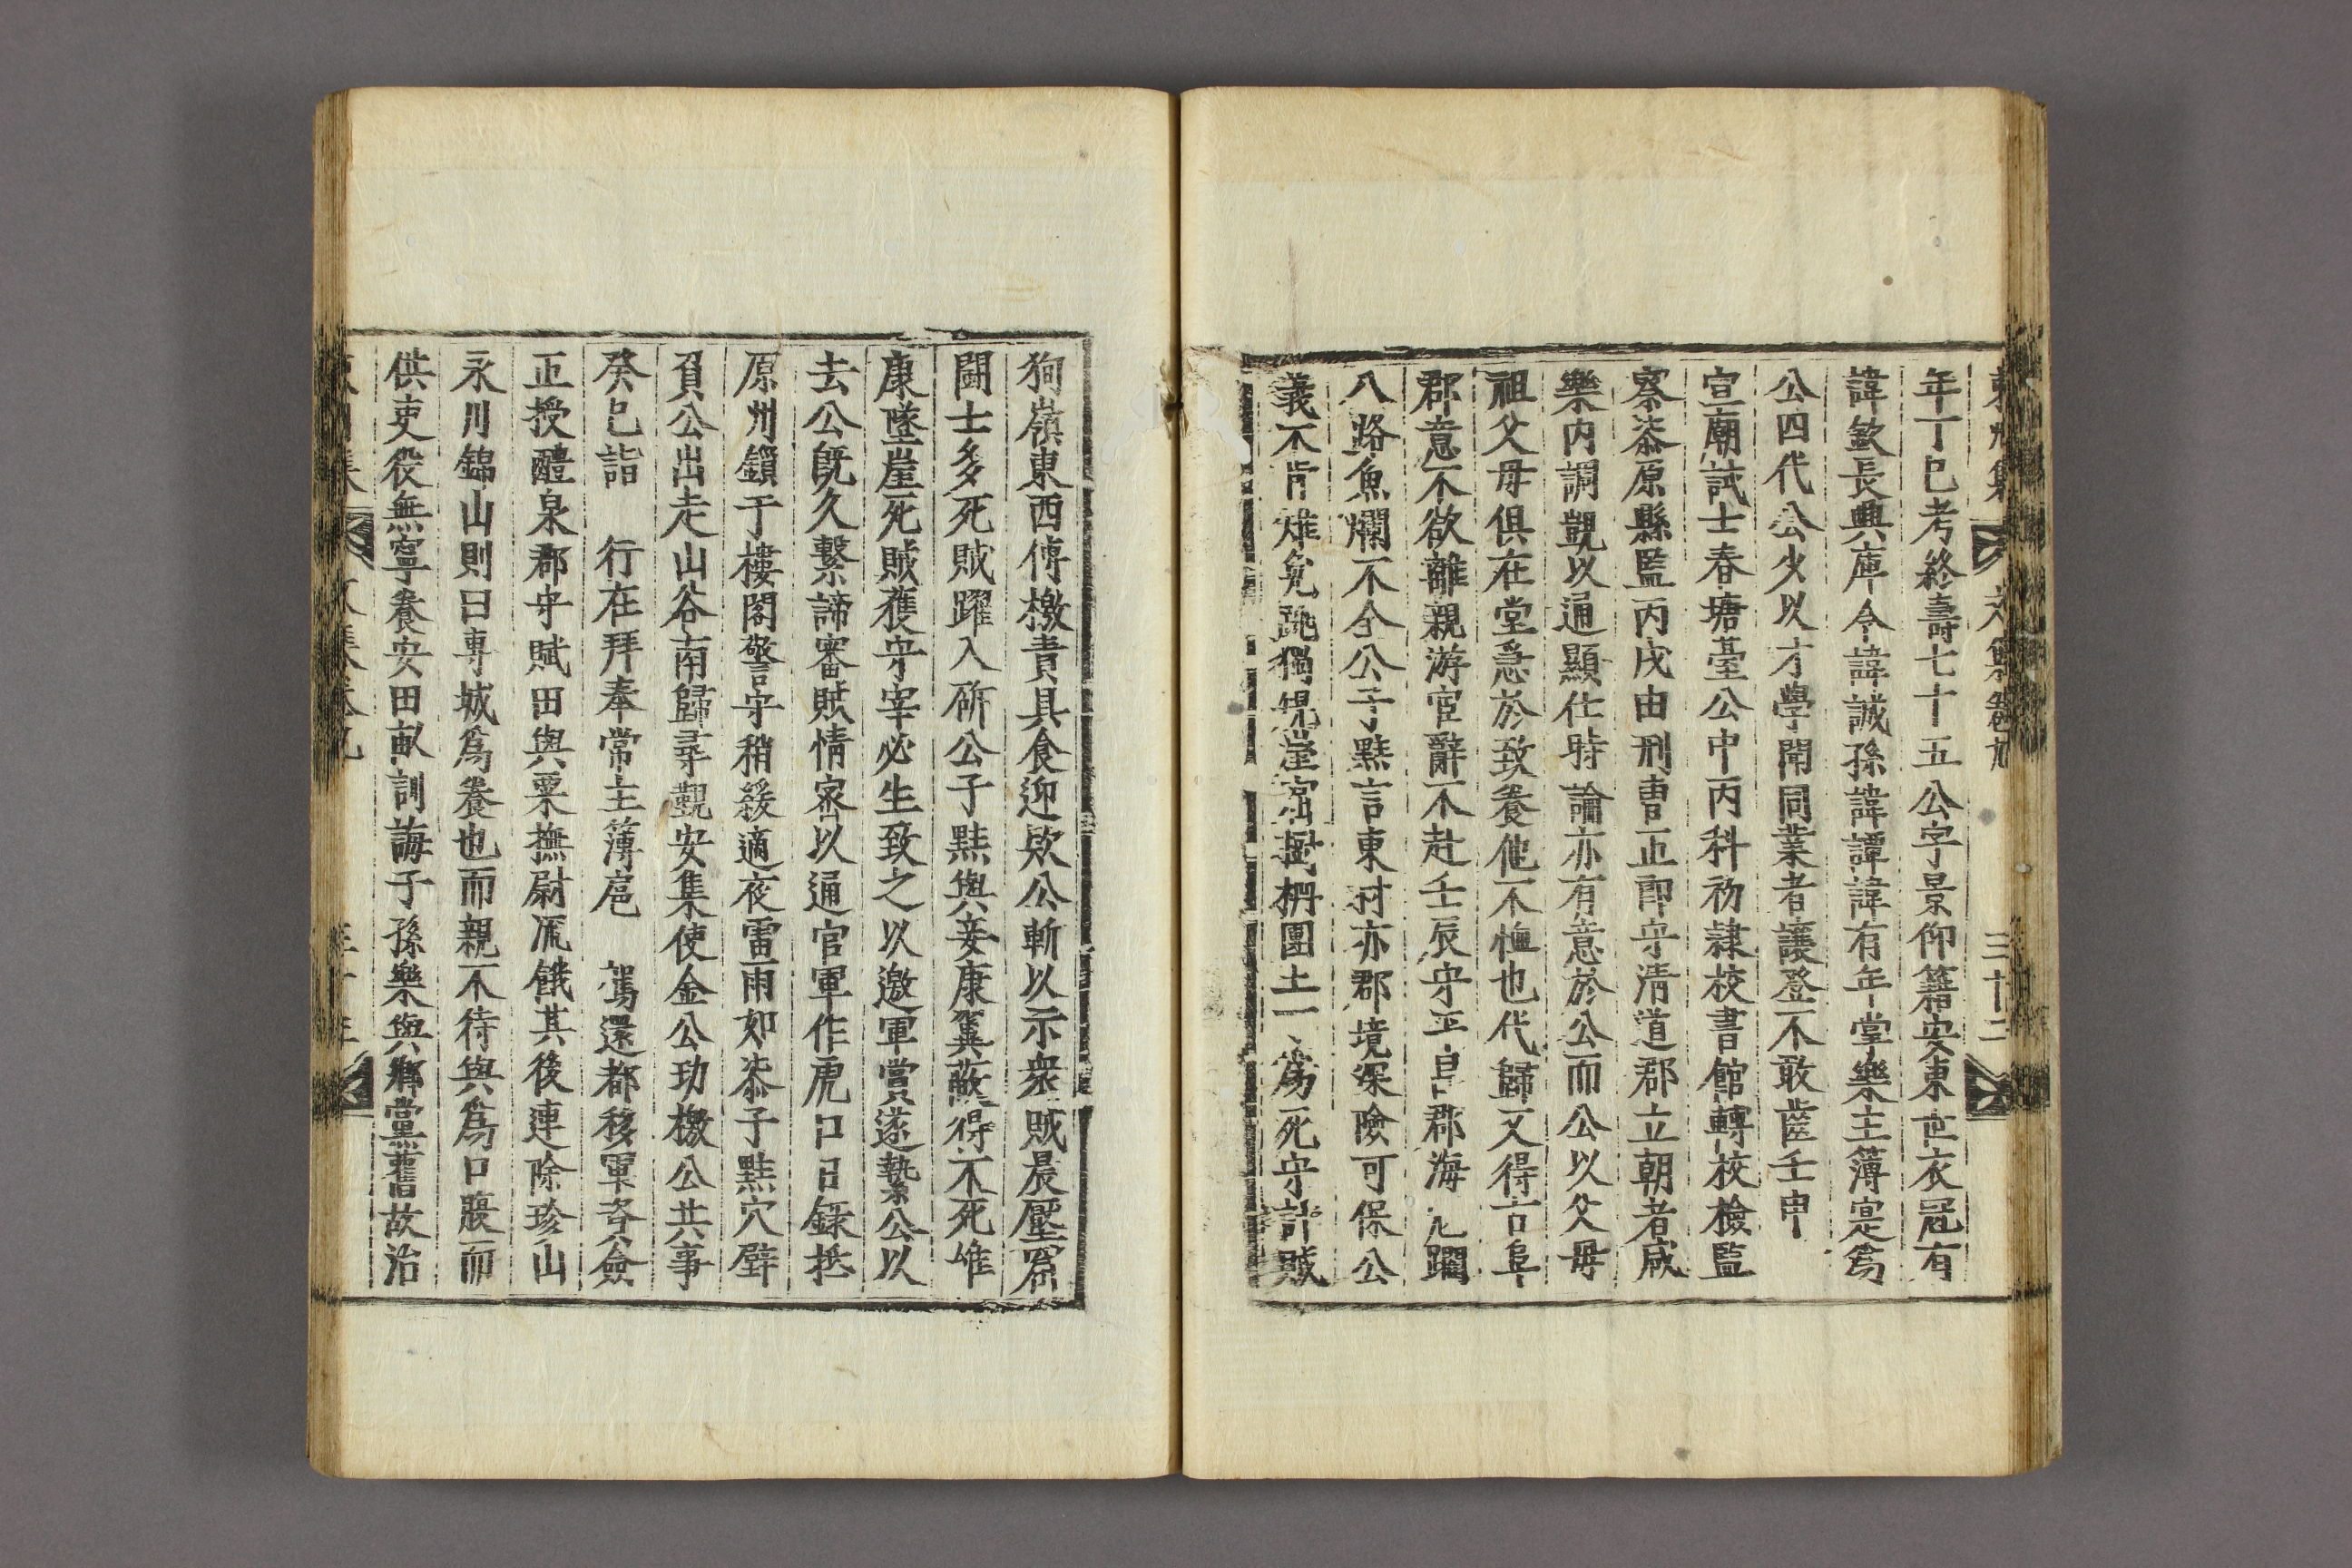 東州集 文集卷九 三十二
年丁巳考終壽七十五公字景仰籍安東世衣冠有
諱欽長興庫令諱誠孫諱譚諱有年掌樂主簿寔爲
公四代公少以才學聞同業者讓登不敢齒壬申
宣廟試士春塘臺公中丙科初隷校書館轉校檢監
察漆原縣監丙戌由刑曹正郎守清道郡立朝者咸
樂内調覬以通顯仕時論亦有意於公而公以父母
祖父母俱在堂急於致養他不恤也代歸又得古阜
郡意不欲離親游宦辭不赴壬辰守平昌郡海 躙
八路魚爛不全公子黙言東村亦郡境深險可保公
義不肯雉兎跳獨 崖窟 團土 爲死守計賊
狗嶺東西傳檄責具食迎欵公斬以示衆賊晨壓窟
闘士多死賊躍入斫公子黙與妾康翼蔽得不死唯
康墜崖死賊獲守宰必生致之以邀軍賞遂縶公以
去公旣久繫諦審賊情密以通官軍作虎口日錄抵
原州鎖于樓閣警守稍緩適夜雷雨如漆子黙穴壁
負公出走山谷南歸尋覲安集使金公玏檄公共事
癸巳詣 行在拜奉常主簿扈 駕還都移軍資僉
正授醴泉郡守賦田與粟撫尉流餓其後連除珍山
永川錦山則曰專城爲養也而親不待與爲口腹而
供吏役無寧養安田畝訓誨子孫樂與鄉黨舊故治
東州集 文集卷九 三十三